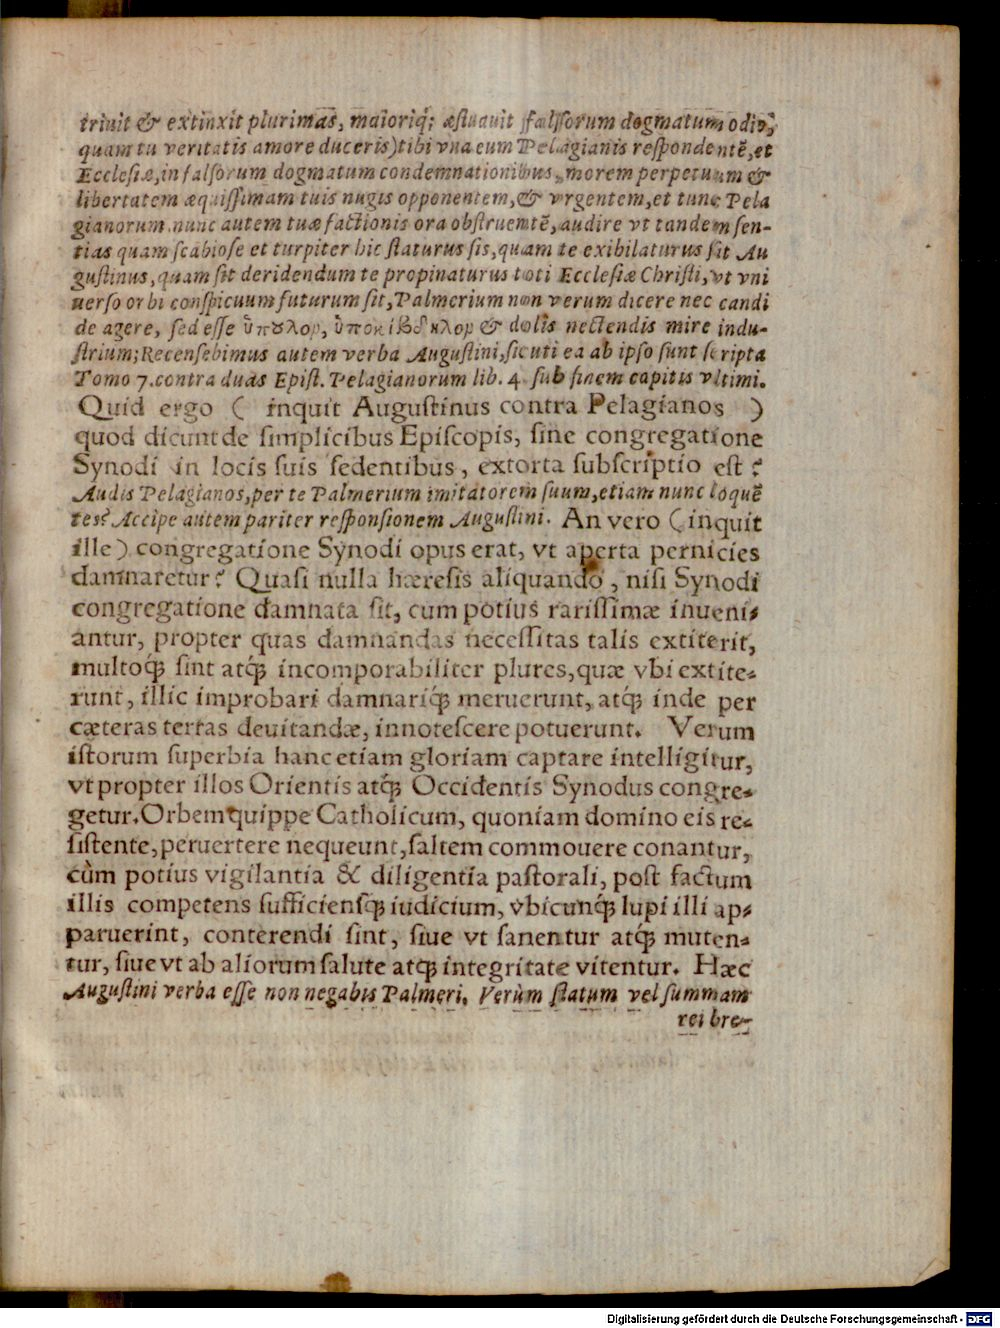 triuit & extinxit plurimas, maioriq́; æstuauit falsorum dogmatum odio,
quam tu veritatis amore duceris)tibi vna cum Pelagianis respondentē,et
Ecclesiæ,in falsorum dogmatum condemnationibus, morem perpetuum &
libertatem æquissimam tuis nugis opponentem,& vrgentem,et tunc Pela
gianorum,nunc autem tuæ factionis ora obstruentē,audire vt tandem sen-
tias quam scabiose et turpiter hic staturus sis,quam te exibilaturus sit Au
gustinus,quam sit deridendum te propinaturus toti Ecclesiæ Christi,vt vni
uerso orbi conspicuum futurum sit,Palmerium non verum dicere nec candi
de agere, sed esse & dolis nectendis mire indu-
strium;Recensebimus autem verba Augustini,sicuti ea ab ipso sunt scripta
Tomo 7.contra duas Epist. Pelagianorum lib. 4. sub finem capitis vltimi.
Quid ergo ( inquit Augustinus contra Pelagianos )
quod dicunt de simplicibus Episcopis, sine congregatione
Synodi in locis suis sedentibus, extorta subscriptio est ?
Audis Pelagianos,per te Palmerium imitatorem suum,etiam nunc loquē
tes? Accipe autem pariter responsionem Augustini. An vero (inquit
ille) congregatione Synodi opus erat, vt aperta pernicies
damnaretur? Quasi nulla hæresis aliquando, nisi Synodi
congregatione damnata sit, cum potius rarissimæ inueni-
antur, propter quas damnandas necessitas talis extiterit,
multoq́; sint atq́; incomporabiliter plures,quæ vbi extite-
runt, illic improbari damnariq́; meruerunt, atq́; inde per
cæteras terras deuitandæ, innotescere potuerunt. Verum
istorum superbia hanc etiam gloriam captare intelligitur,
vt propter illos Orientis atq́; Occidentis Synodus congre-
getur.Orbem quippe Catholicum, quoniam domino eis re-
sistente,peruertere nequeunt,saltem commouere conantur,
cùm potius vigilantia & diligentia pastorali, post factum
illis competens sufficiensq́; iudicium, vbicunq́; lupi illi ap-
paruerint, conterendi sint, siue vt sanentur atq́; muten-
tur, siue vt ab aliorum salute atq́; integritate vitentur. Hæc
Augustini verba esse non negabis Palmeri. Verùm statum vel summam
rei bre-
Digitalisierung gefördert durch die Deutsche Forschungsgemeinschaft - DFG